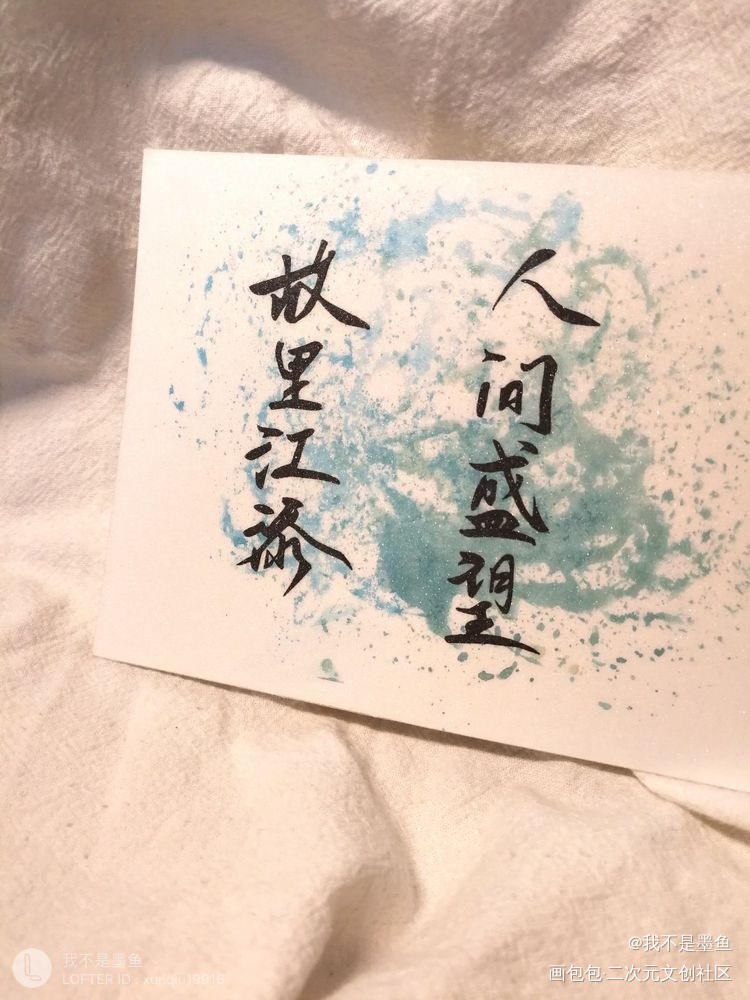 人间盛望
故里江添
我不是墨鱼
LOFTER ID: xunqiu19916
@我不是墨鱼
画包包·二次元文创社区